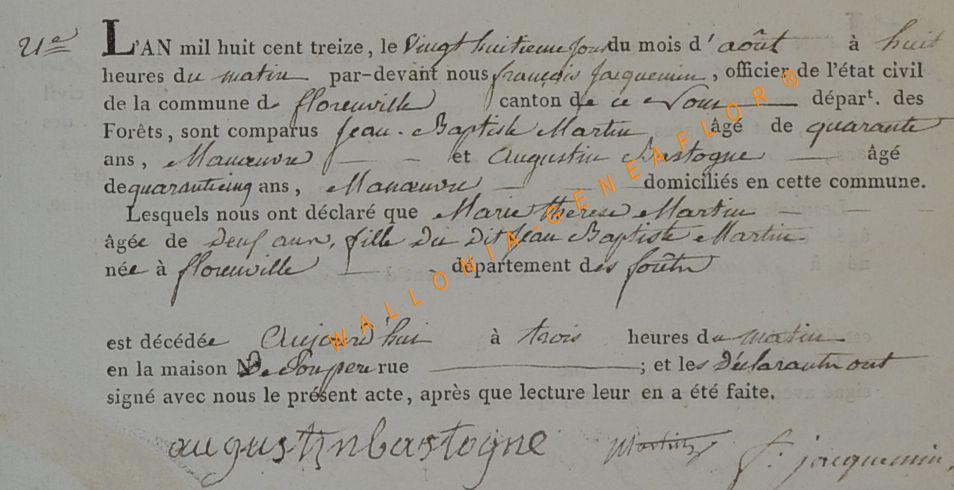 21e
L'AN mil huit cent treize, le Vingt huitieme jour du mois d'août à huit
heures du matin par-devant nous françois Jacquemin, officier de l'état civil
de la commune de florenville canton de ce Nom départ. des
Forêts, sont comparus Jean-Baptiste Martin âgé de quarante
ans, Manœuvre et augustin Bastogne âgé
de quarantecinq ans, Manœuvre domiciliés en cette commune.
Lesquels nous ont déclaré que Marie therese Martin
âgée de Deux ans, fille du dit Jean Baptiste Martin
née à florenville département des forêts
est décédée aujourd'hui à trois heures du matin
en la maison De son pere rue ; et les déclarants ont
signé avec nous le présent acte, après que lecture leur en a été faite.
augustin bastogne Martin f. jacquemin,
WALLONIA-GENEAFLOR®